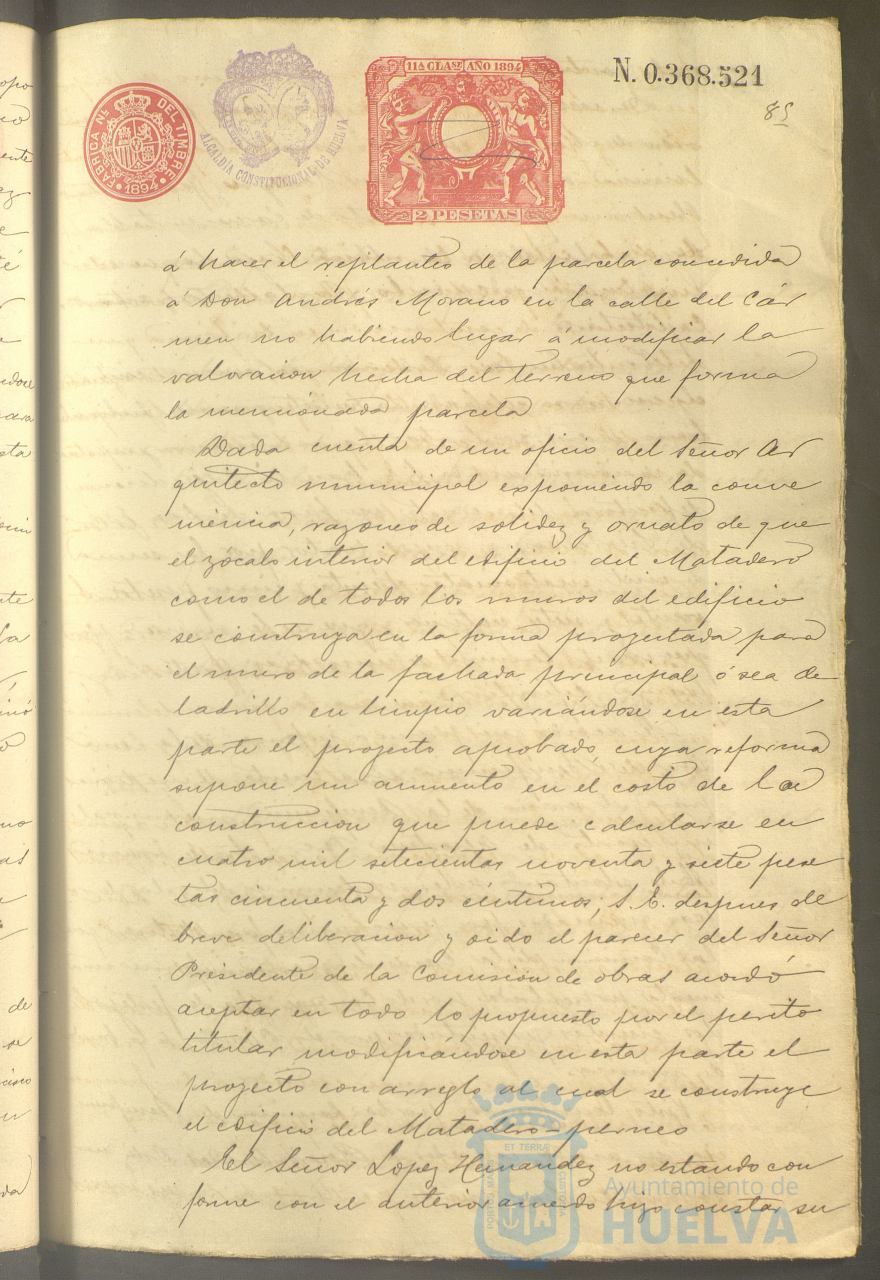 FABRICA Nl. DEL TIMBRE
1894
ALCALDIA CONSTITUCIONAL DE HUELVA
11ª CLASE AÑO 1894
2 PESETAS
N. 0.368.521
85
á hacer el replanteo de la parcela concedida
á Don Andrés Morano en la calle del Cár
men no habiendo lugar á modificar la
valoracion hecha del terreno que forma
la mencionada parcela
Dada cuenta de un oficio del Señor Ar
quitecto municipal exponiendo la conve
niencia, razones de solidez y ornato de que
el zócalo interior del edificio del Matadero
como el de todos los muros del edificio
se construya en la forma proyectada para
el muro de la fachada principal ó sea de
ladrillo en limpio variándose en esta
parte el proyecto aprobado, cuya reforma
supone un aumento en el costo de la
construccion que puede calcularse en
cuatro mil setecientas noventa y siete pese
tas cincuenta y dos céntimos; S. E. despues de
breve deliberacion y oido el parecer del Señor
Presidente de la Comision de obras acordó
aceptar en todo lo propuesto por el perito
titular modificándose en esta parte el
proyecto con arreglo al cual se construye
el edificio del Matadero-perneo
El Señor Lopez Hernandez no estando con
forme con el anterior acuerdo hizo constar su
PORTUS MARIS ET TERRÆ CUSTODIA
Ayuntamiento de
HUELVA